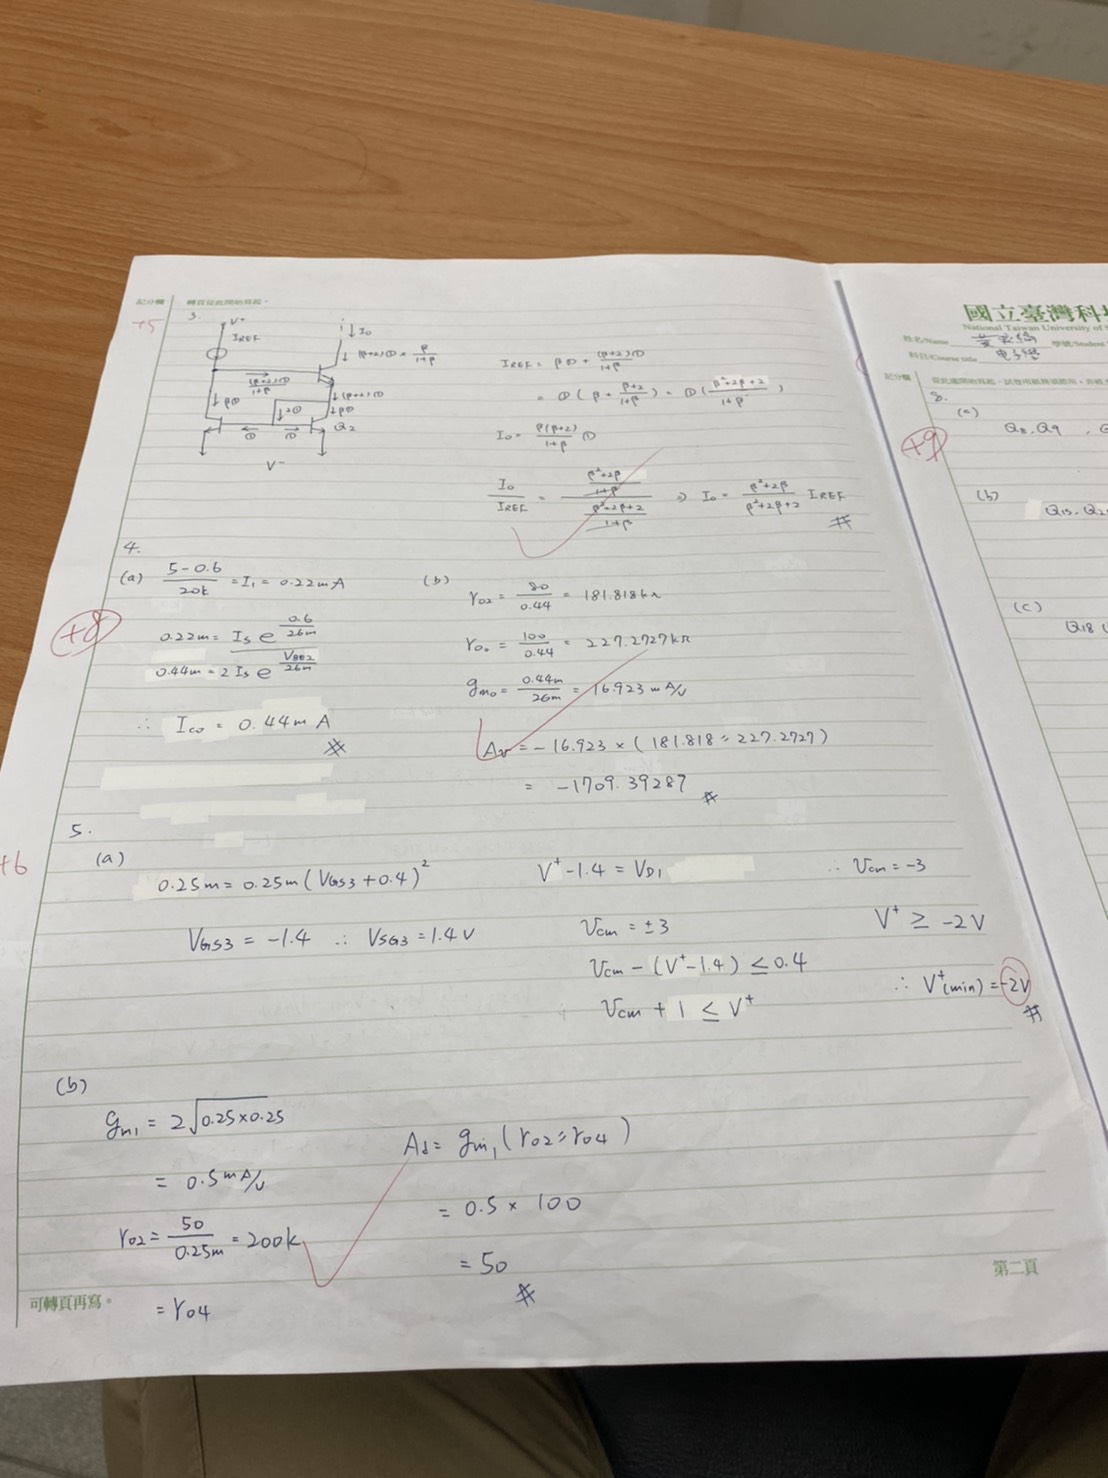 記分欄 轉頁從此開始寫起。
+5
3.
V+
IREF
↓ I0
↓ (β+2)① × β/(1+β)
(β+2)①/(1+β)
↓(β+2)①
↓β① ↓2① ↓β①
① ① Q2
V-
IREF = β① + (β+2)①/(1+β)
= ①(β + (β+2)/(1+β)) = ①((β²+2β+2)/(1+β))
I0 = β(β+2)/(1+β) ①
I0/IREF = ((β²+2β)/(1+β))/((β²+2β+2)/(1+β)) ⇒ I0 = (β²+2β)/(β²+2β+2) IREF
#
4.
+8
(a) (5-0.6)/20k = I1 = 0.22mA
0.22m = Is e^(0.6/26m)
0.44m = 2 Is e^(VBE2/26m)
∴ Ico = 0.44m A
#
(b)
ro2 = 80/0.44 = 181.818kΩ
ro0 = 100/0.44 = 227.2727kΩ
gmo = 0.44m/26m = 16.923 mA/V
Av = -16.923 × (181.818 // 227.2727)
= -1709.39287
#
+6
5.
(a)
0.25m = 0.25m (VGS3 + 0.4)²
VGS3 = -1.4 ∴ VSG3 = 1.4V
V+ - 1.4 = VD1
Vcm = ±3
Vcm - (V+ - 1.4) ≤ 0.4
Vcm + 1 ≤ V+
∴ Vcm = -3
V+ ≥ -2V
∴ V+(min) = -2V
#
(b)
gm1 = 2√(0.25×0.25)
= 0.5 mA/V
ro2 = 50/0.25m = 200k
= ro4
Ad = gm1 (ro2 // ro4)
= 0.5 × 100
= 50
#
可轉頁再寫。
第二頁
國立臺灣科
National Taiwan University of
姓名/Name
學號/Student
科目/Course title 電子學
記分欄
+9
8.
(a)
Q8, Q9
(b)
Q15, Q2
(c)
Q18